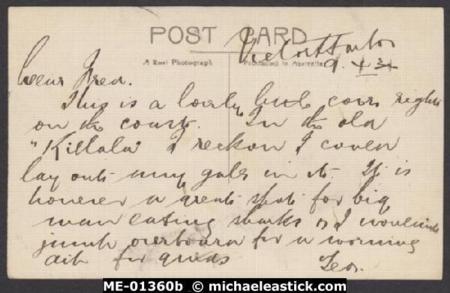 POST CARD
A Real Photograph
Victor Harbor
9.4.31
Dear Fred.
This is a lovely little cove right
on the coast. In the old
"Killala" I reckon I could
lay out any gales in it. It is
however a great spot for big
man eating sharks so I wouldn't
jump overboard for a morning
dip for quids
Geo.
ME-01360b © michaeleastick.com